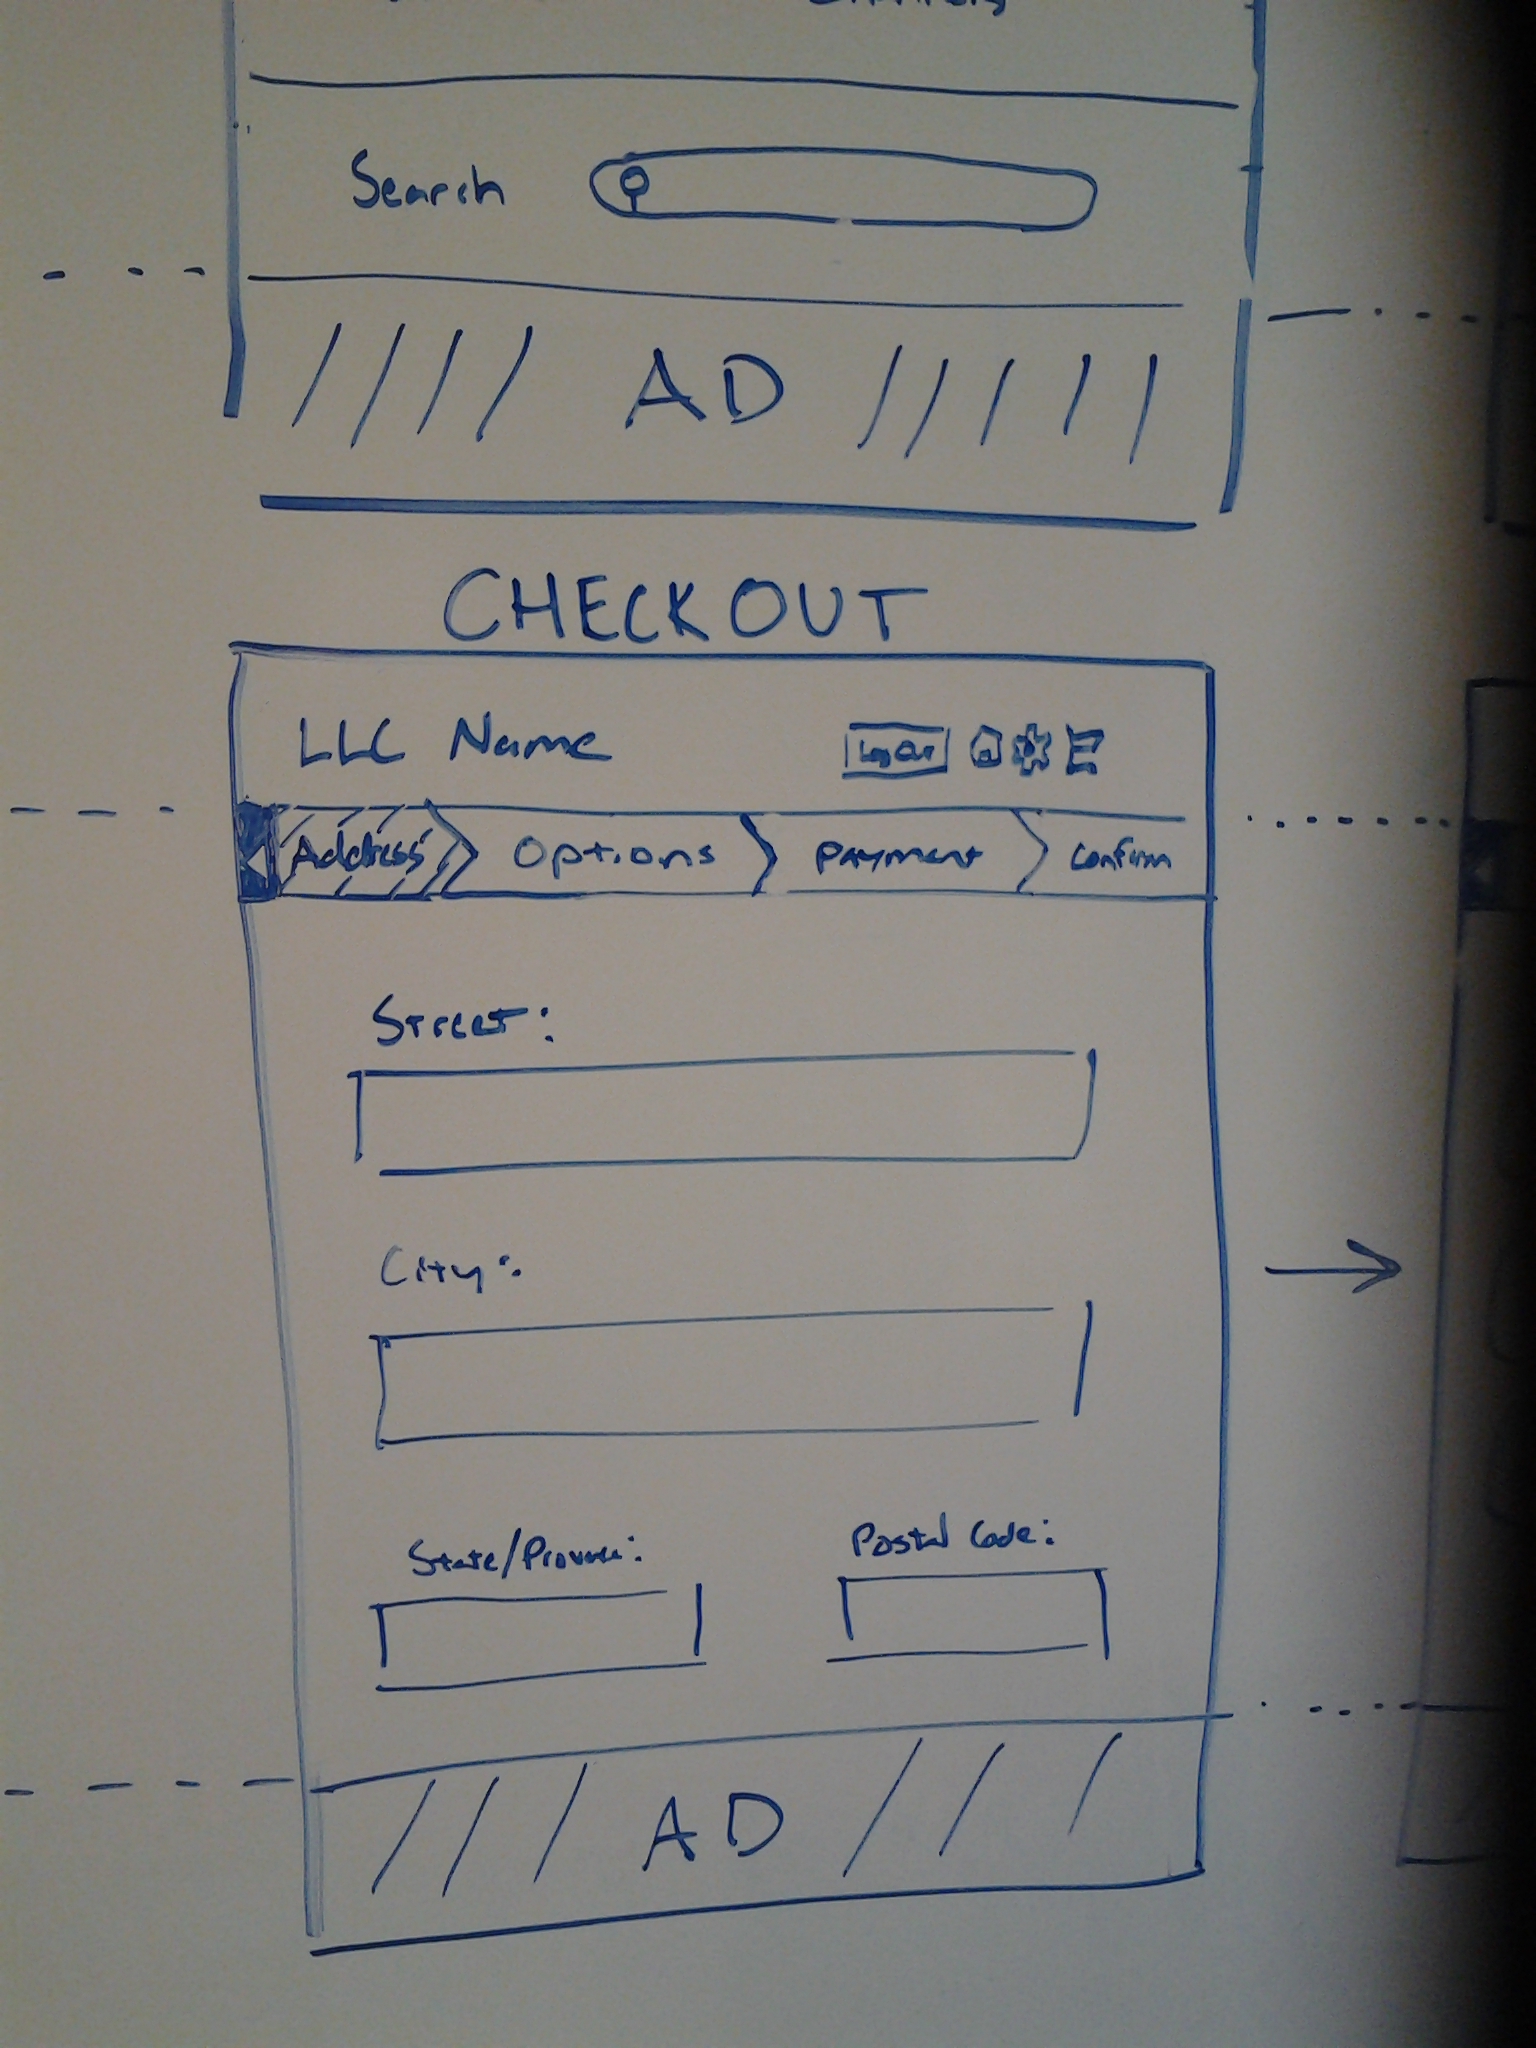 Search
AD
CHECKOUT
LLC Name Log Out
Address Options Payment Confirm
Street:
City:
State/Province: Postal Code:
AD